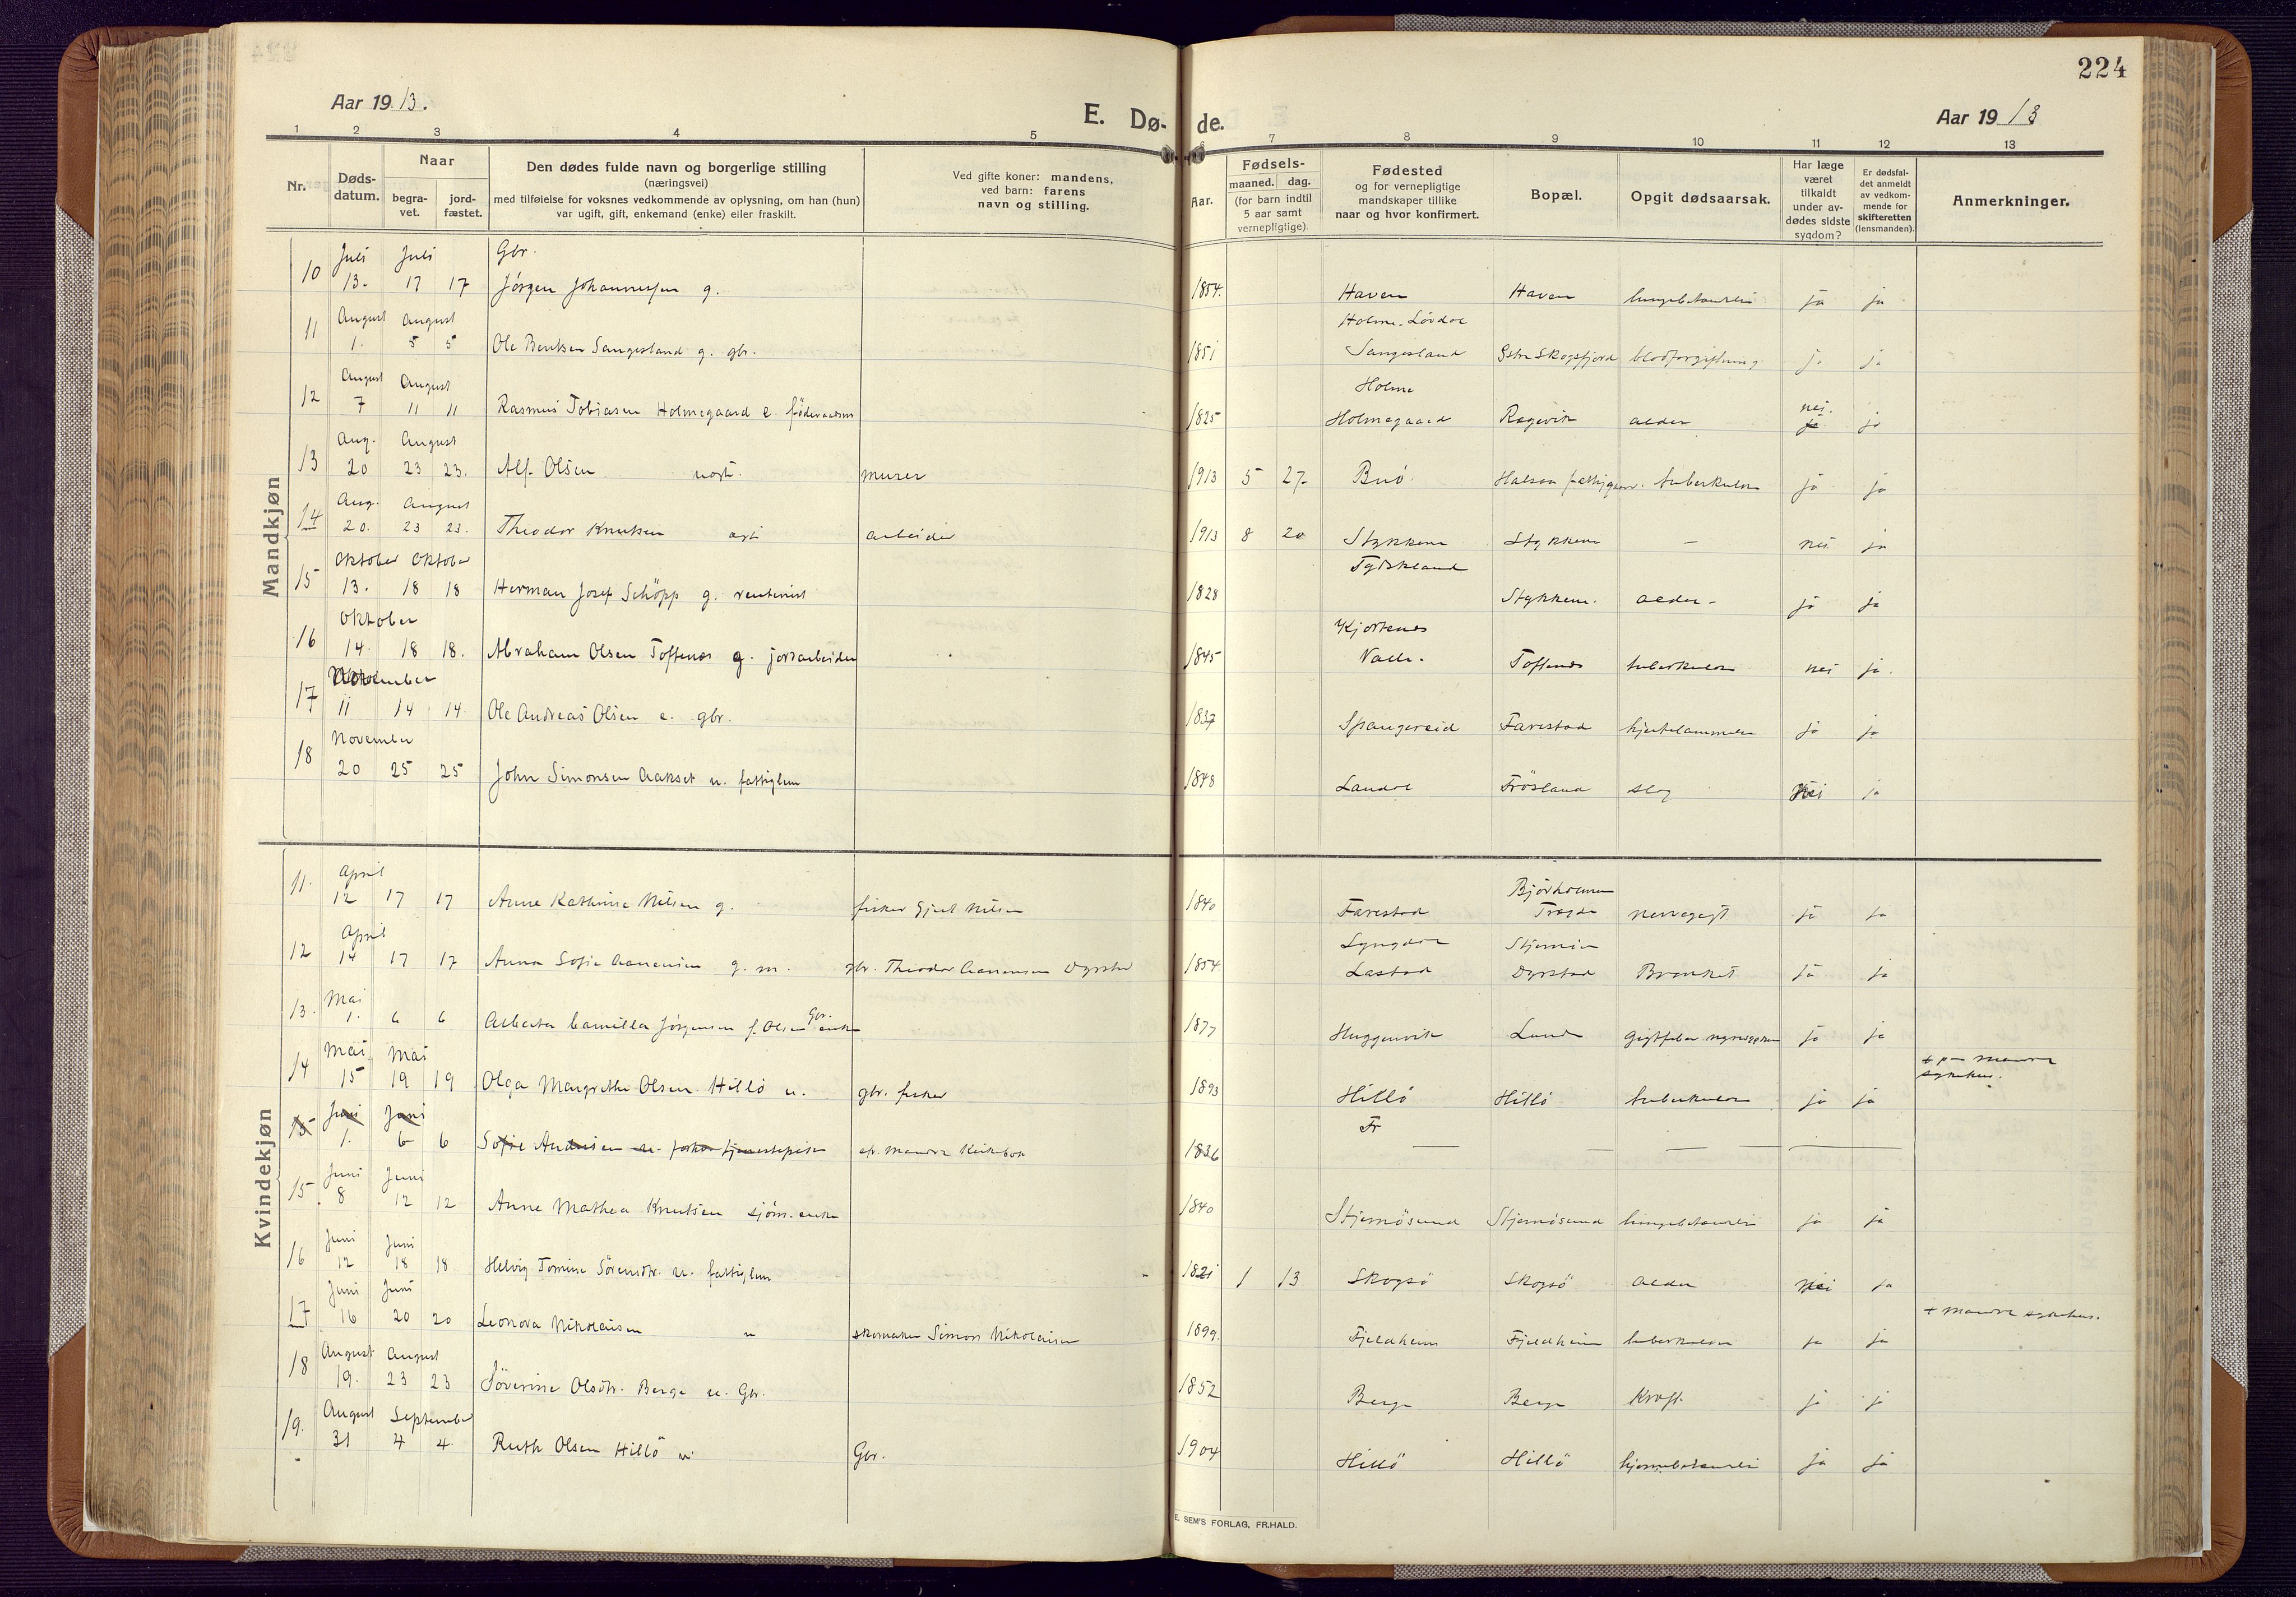 224
Aar 1913.
E. Dø- de.
Aar 1913
1 2 3 4 5 6 7 8 9 10 11 12 13
Nr.
Døds-
datum.
Naar
begra-
vet.
jord-
fæstet.
Den dødes fulde navn og borgerlige stilling
(næringsvei)
med tilføielse for voksnes vedkommende av oplysning, om han (hun)
var ugift, gift, enkemand (enke) eller fraskilt.
Ved gifte koner: mandens,
ved barn: farens
navn og stilling.
Aar.
Fødsels-
maaned. dag.
(for barn indtil
5 aar samt
vernepligtige).
Fødested
og for vernepligtige
mandskaper tillike
naar og hvor konfirmert.
Bopæl.
Opgit dødsaarsak.
Har læge
været
tilkaldt
under av-
dødes sidste
sygdom?
Er dødsfal-
det anmeldt
av vedkom-
mende for
skifteretten
(lensmanden).
Anmerkninger.
Mandkjøn
Juli Juli Gbr.
10 13. 17 17 Jørgen Johannessen g. 1854. Haven Haven lungebetændelse ja ja
August August Holme-Løvdal
11 1. 5 5 Ole Bentsen Sangesland g. gbr. 1851 Sangesland Ostre Skogsfjord blodforgiftning ja ja
August August Holme
12 7 11 11 Rasmus Tobiasen Holmegaard e. føderaadsm 1825 Holmegaard Rægevik alder nei. ja ja
Aug. August
13 20 23 23. Alf Olsen uegt. murer 1913 5 27 Buø Halsaa fattiggaard. tuberkulose ja ja
Aug. August
14 20. 23 23. Theodor Knutsen egte arbeider 1913 8 20 Stykkene Stykkene – nei ja
Oktober Oktober Tydskland
15 13. 18 18 Herman Josef Schöpp g. rentenist 1828 Stykkene. alder- ja ja
Oktober Kjortenes
16 14. 18 18. Abraham Olsen Toftenes g. jordarbeider 1845 Valle. Toftenes tuberkulose nei ja.
November
17 11 14 14. Ole Andreas Olsen e. gbr. 1837 Spangereid Farestad hjertelammelse ja ja
November
18 20 25 25 John Simonsen Aakset u. fattiglem 1848 Landøl Frøsland slag Nei ja
Kvindekjøn
April Bjørholmen
11. 12 17 17 Anne Kathrine Nilsen g. fisker Gjert Nilsen 1840 Farestad Trægde nervegigt ja ja
April Lyngdal Stjernø
12 14 17 17 Anna Sofie Aanensen g. m. gbr. Theodor Aanensen Dyrstad 1854. Lastad Dyrstad Bronkit ja ja
Mai Gbr.
13. 1. 6 6 Alberta Camilla Jørgensen f. Olsen enke 1877 Huggenvik Lunde gigtfeber nyresygdom ja ja
Mai Mai + paa Mandal
14 15 19 19 Olga Margrethe Olsen Hillø u. gbr. fisker 1893 Hillø Hillø tuberkulose ja ja sykehus.
Juni Juni Fr
15 1. 6 6 Sofie Andersen u. forhen tjenestepike ef. Mandal Kirkebok 1836 — — — —
Juni Juni
15 8 12 12 Anne Mathea Knutsen sjøm. enke 1840 Stjernøsund Stjernøsund lungebetændelse ja ja
Juni Juni
16 12 18 18 Helvig Tomine Sørensdtr. u. fattiglem 1821 1 13 Skogsø Skogsø alder Nei ja
Juni Juni + Mandal sykehus.
17 16 20 20 Leonora Nikolaisen u skomaker Simon Nikolaisen 1899. Fjeldheim Fjeldheim tuberkulose ja ja
August August
18 19. 23 23 Søverine Olsdtr. Berge u. Gbr. 1852 Berge Berge Kræft. ja ja
August September
19. 31 4 4. Ruth Olsen Hillø u Gbr. 1904 Hillø Hillø hjernebetændelse ja ja
E. SEM'S FORLAG, FR.HALD.